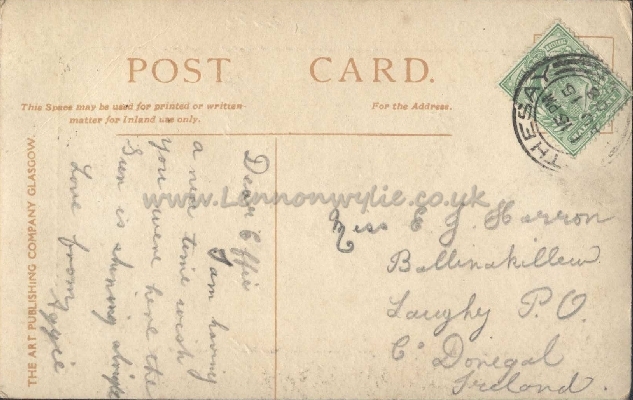 POST CARD.
This Space may be used for printed or written
matter for Inland use only.
For the Address.
THE ART PUBLISHING COMPANY GLASGOW.
Dear Effie
I am having
a nice time wish
you were here the
Sun is shining
Love from
www.Lennonwylie.co.uk
Miss E J. Harron
Ballinakillew
Laughy P.O.
Co Donegal
Ireland.
THESAY